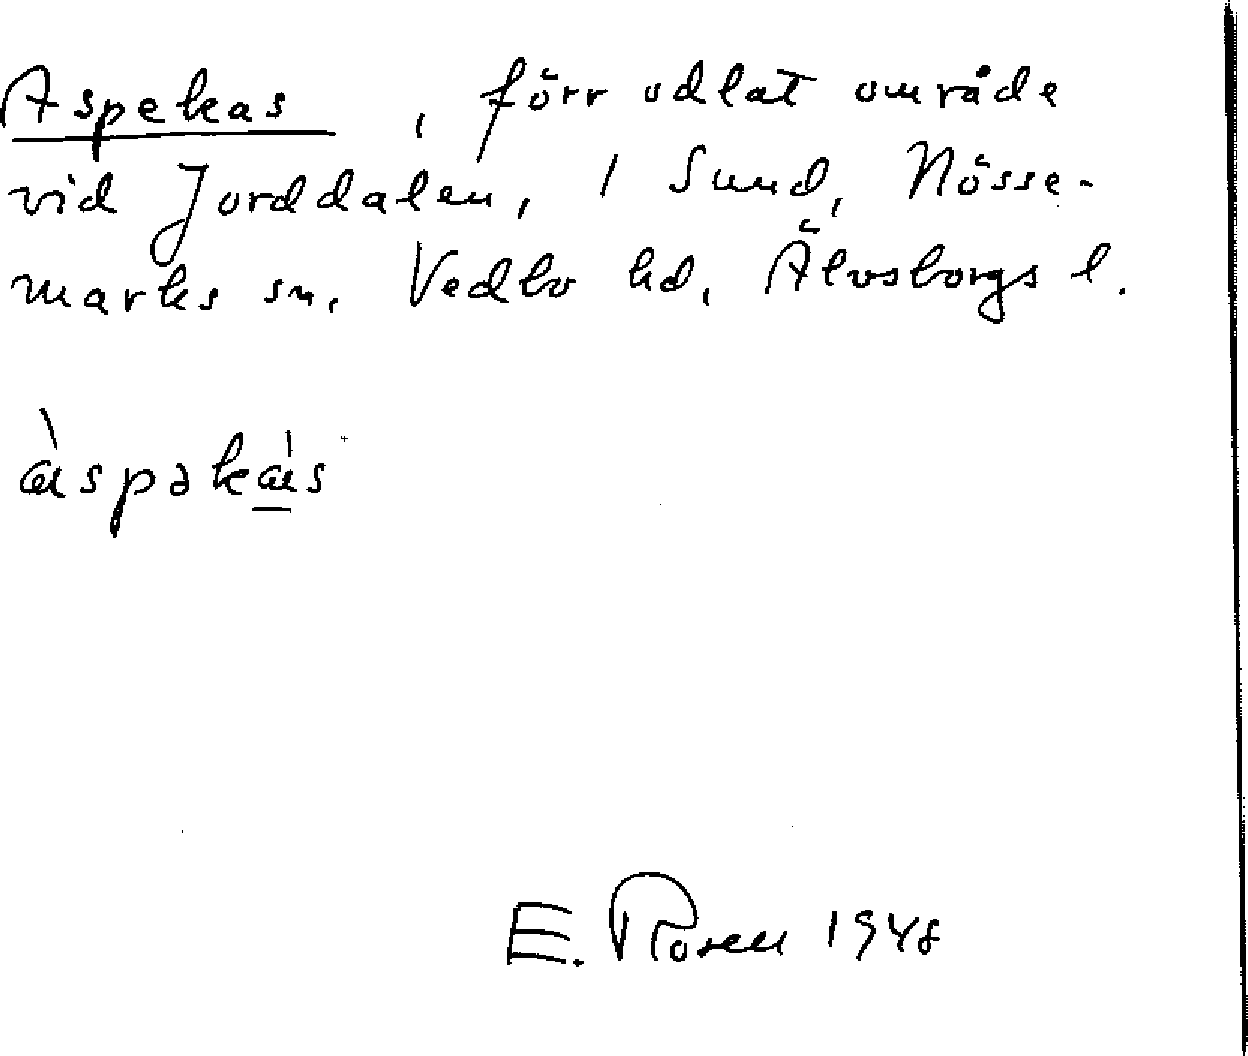 Aspekas, förr odlat område
vid Jorddalen, 1 Sund, Nösse-
marks sn, Vedbo hd, Älvsborgs l.
àspəkás
E. Rosen 1948